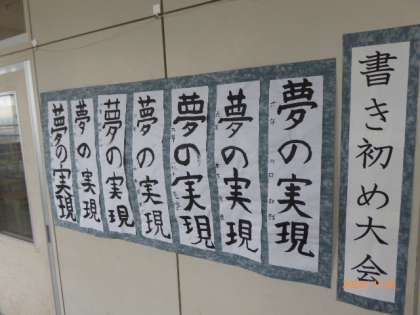 書き初め大会
夢の実現
夢の実現
夢の実現
夢の実現
夢の実現
夢の実現
夢の実現